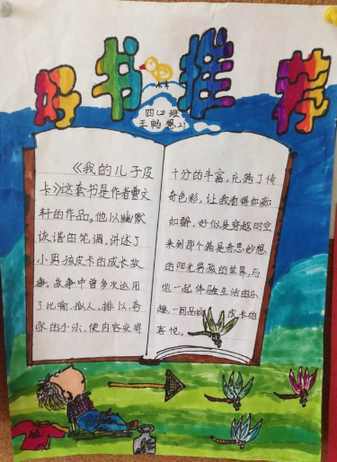 好书推荐
四(2)班
《我的儿子皮
卡》这套书是作者曹文
轩的作品。他以幽默
诙谐的笔调，讲述了
小男孩皮卡的成长故
事。故事中曾多次运用
了比喻、拟人、排比、夸
张的手法，使内容变得
十分的丰富，充满了传
奇色彩，让我看得如痴
如醉，好似是穿越时空
来到那个满是奇思妙想
的阳光男孩的世界，与
他一起体验生活的乐
趣，一同品
皮卡的
喜悦。